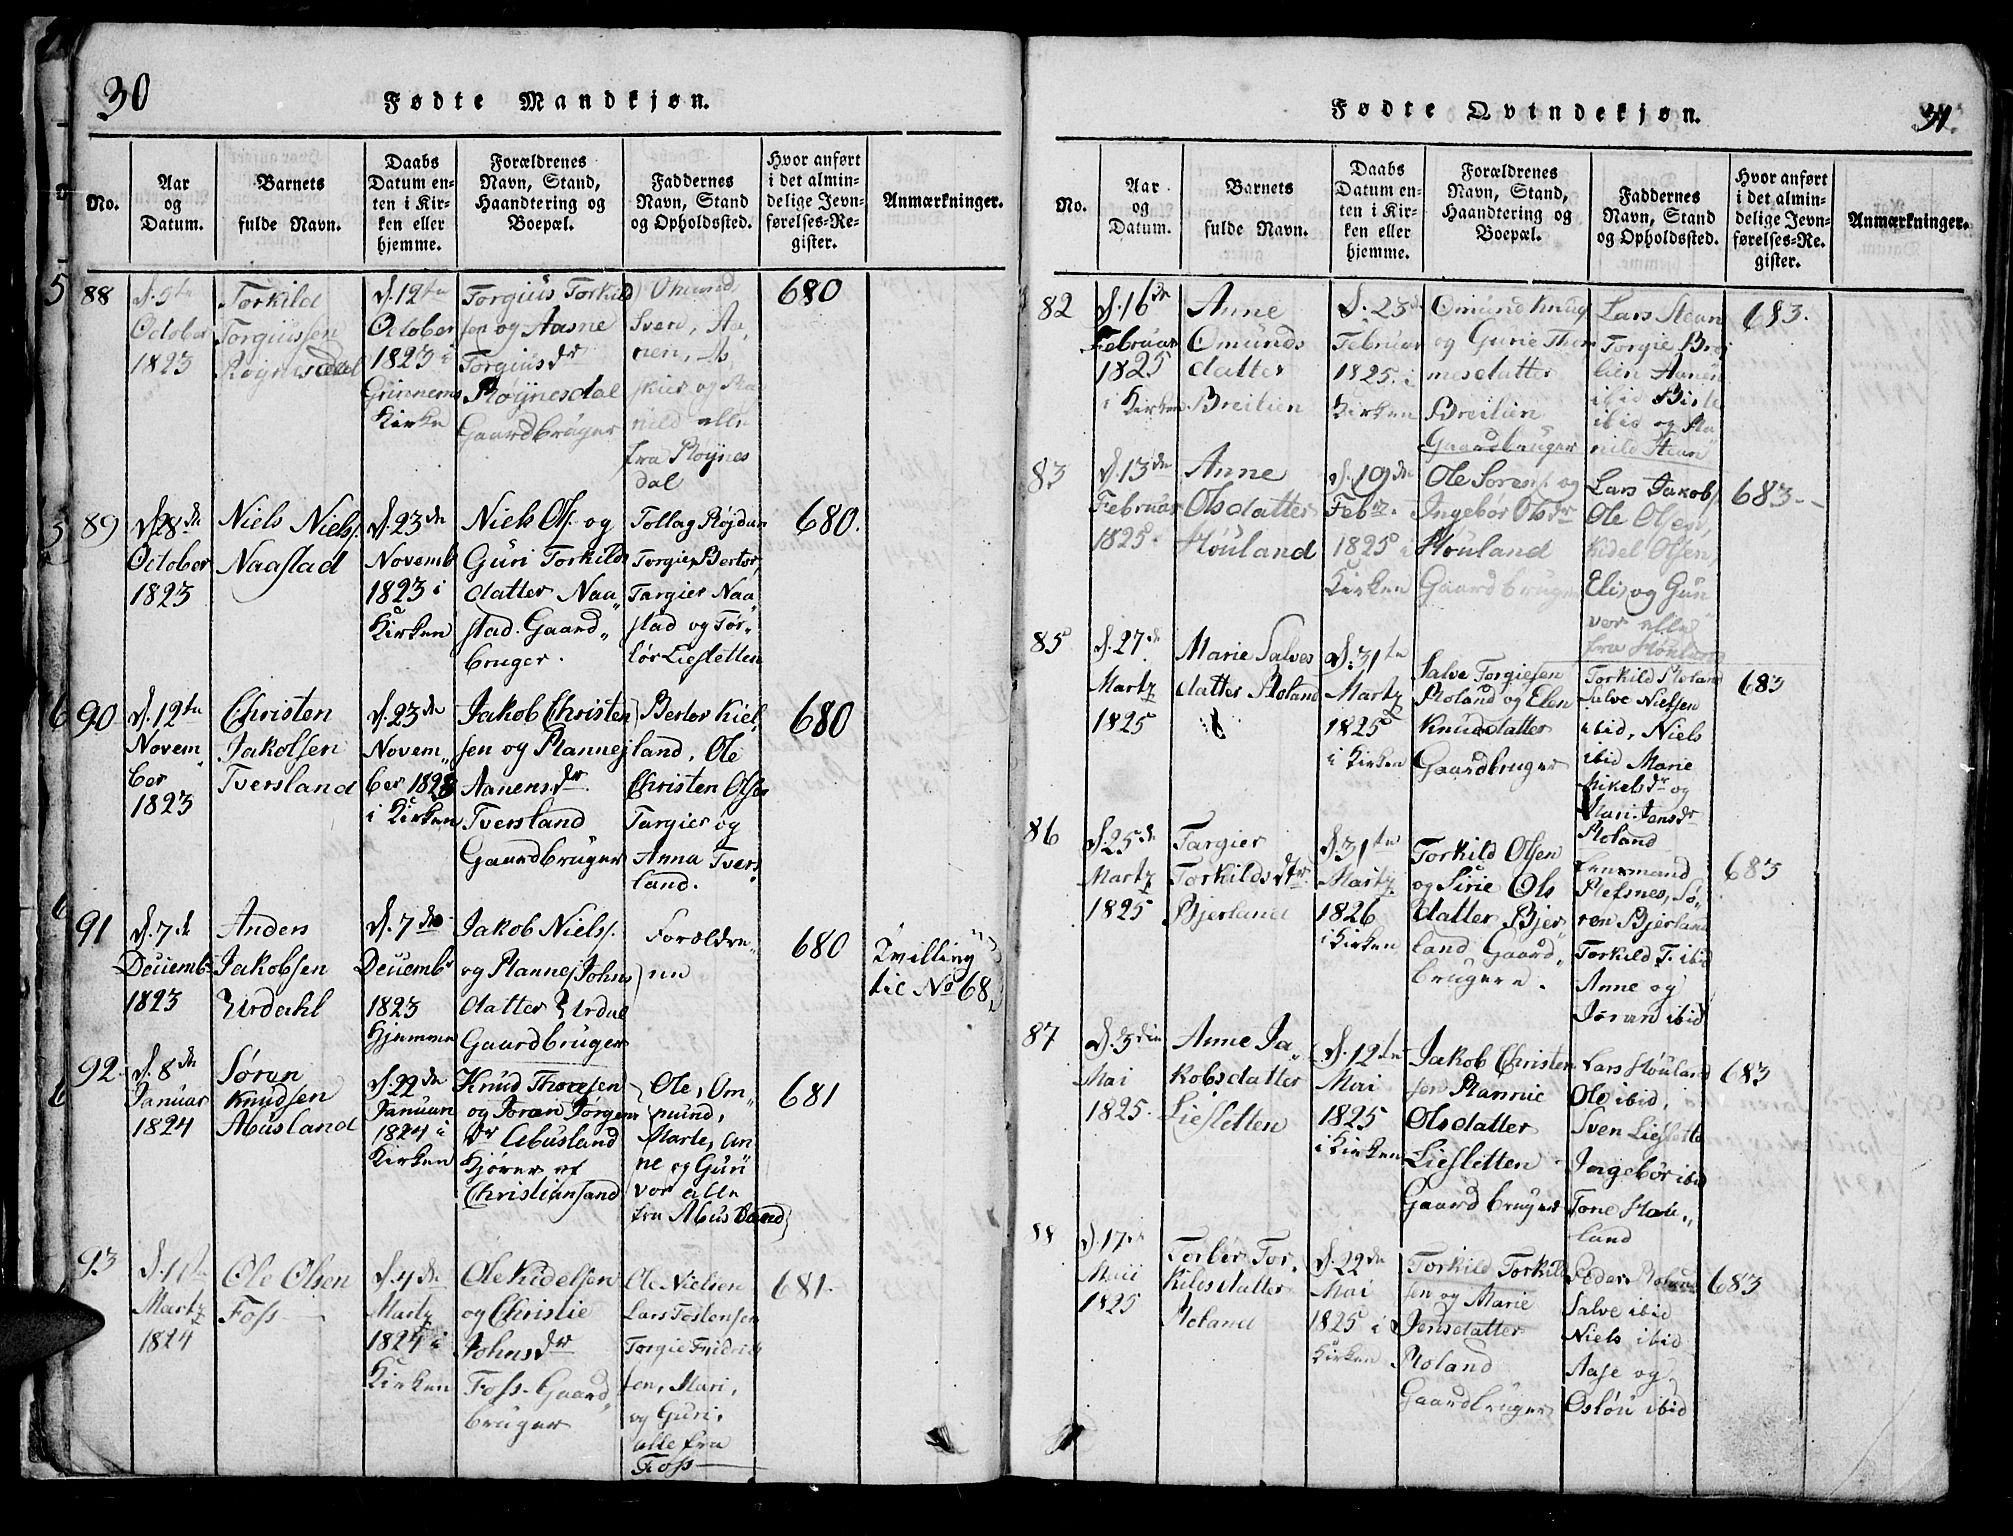 30
Fødte Mandkjøn.
No.
Aar
og
Datum.
Barnets
fulde Navn.
Daabs
Datum en-
ten i Kir-
ken eller
hjemme.
Forældrenes
Navn, Stand,
Haandtering og
Boepæl.
Faddernes
Navn, Stand
og Opholdssted.
Hvor anført
i det almin-
delige Jevn-
førelses-Re-
gister.
Anmærkninger.
88
October
1823
Torkild
Torgiussen
d. 12te
October
1823 i
Kirken
Torgius Torkild
sen og Aasne
Torgiusdr
Røynesdal
Gaardbruger
Omund
Sven, Aa
nen, As
nild alle
fra Røynes
dal
680
89
d. 28de
October
1823
Niels Niels.
Naastad
d. 23de
Novemb
1823 i
Kirken
Niels Ols. og
Guri Torkilds
datter Naa„
stad. Gaard„
bruger.
Tollag Røjdun
Torgier Bertor,
Targier Naa„
stad og Tor„
lör Liesletten
680.
90
d. 12te
Novem„
ber
1823
Christen
Jakobsen
Tversland
d. 23de
Novem„
ber 1823
i Kirken
Jakob Christen
sen og Rannej
Aanensdr
Tversland
Gaardbruger
Bertor Kiel
land, Ole
Christen Olsen
Targier og
Anna Tvers
land.
680
91
d. 7de
Decemb.
1823
Anders
Jakobsen
Urdahl
d. 7de
Decembr
1823
Hjemme
Jakob Niels.
og Rannej Johns
datter Urdal
Gaardbruger
Forældre„
ne
680
Tvilling
til No 68
92
d. 8de
Januar
1824
Søren
Knudsen
Abusland
d. 22de
Januari
1824 i
Kirken
Knud Thoresen
og Joran Jørgens
dr Abusland
Hjører af
Christiansand
Ole, Om„
mund,
Marte, An
ne og Gun
vor alle
fra Abusland
681
93
d. 11te
Martz
1824
Ole Olsen
Foss
d. 4de
Martz
1824 i
Kirken
Ole Kidelsen
og Christie
Johnsdr
Foss. Gaard„
bruger
Ole Nielsen
Lars Tostensen
Torgie Fridrich
sen, Mari,
og Guri,
alle fra
Foss
681.
31.
Fødte Qvindekjøn.
No.
Aar
og
Datum.
Barnets
fulde Navn.
Daabs
Datum en-
ten i Kir-
ken eller
hjemme.
Forældrenes
Navn, Stand,
Haandtering og
Boepæl.
Faddernes
Navn, Stand
og Opholdssted.
Hvor anført
i det almin-
delige Jevn-
førelses-Re-
gister.
Anmærkninger.
82
d. 16de
Februar
1825
i Kirken
Anne
Omunds
datter
Breilien
d. 23de
Februar
1825. i
Kirken
Omund Knud
og Gurie Thom
mesdatter
Breilien
Gaardbruger
Lars Stean
Torgie Brei
lien Aanen
ibid
ibid og Ra
nild Stean
683.
83
d. 13de
Februar
1825.
Anne
Olsdatter
Høuland
d. 19de
Febr.
1825 i
Kirken
Ole Sorens. og
Ingebor Olsdr
Høuland
Gaardbruger
Lars Jakobs.
Ole Olsen,
Kidel Olsen,
Eli, og Gun
vor alle
fra Høuland
683
85
d. 27de
Martz
1825
Marie Salves
datter Roland
d. 31te
Martz
1825
i Kirken
Salve Torgiesen
Roland og Elen
Knudsdatter
Gaardbruger
Torkild Roland
Salve Nielsen
ibid, Niels
ibid Marie
Mikelsdr og
Mari Jensdr
Roland
683
86
d. 25de
Martz
1825
Targier
Torkildsdtr
Bjerland
d. 31te
Martz
1826
i Kirken
Torkild Olsen
og Sirie Ols
datter Bjer„
land Gaard„
brugere.
Lensmand
Refsnes, Sø„
ren Bjerland
Torkild T. ibid
Anne og
Joran ibid
683
87
d. 3die
Mai
1825.
Anne Ja„
kobsdatter
Liesletten
d. 12te
Mai
1825
i Kirken
Jakob Christen
sen Rannie
Olsdatter
Liesletten
Gaardbruger
Lars Høuland
Ole ibid,
Sven Liesletten
Ingebor ibid
Tone Høu„
land
683
88
d. 17de
Maii
1825
Torber Tor„
kildsdatter
Roland
d. 22de
Mai
1825 i
Kirken
Torkild Torkild
sen og Marie
Jensdatter
Roland
Gaardbruger
Peder Roland
Salve ibid
Niels ibid
Aase og
Osløu ibid
683